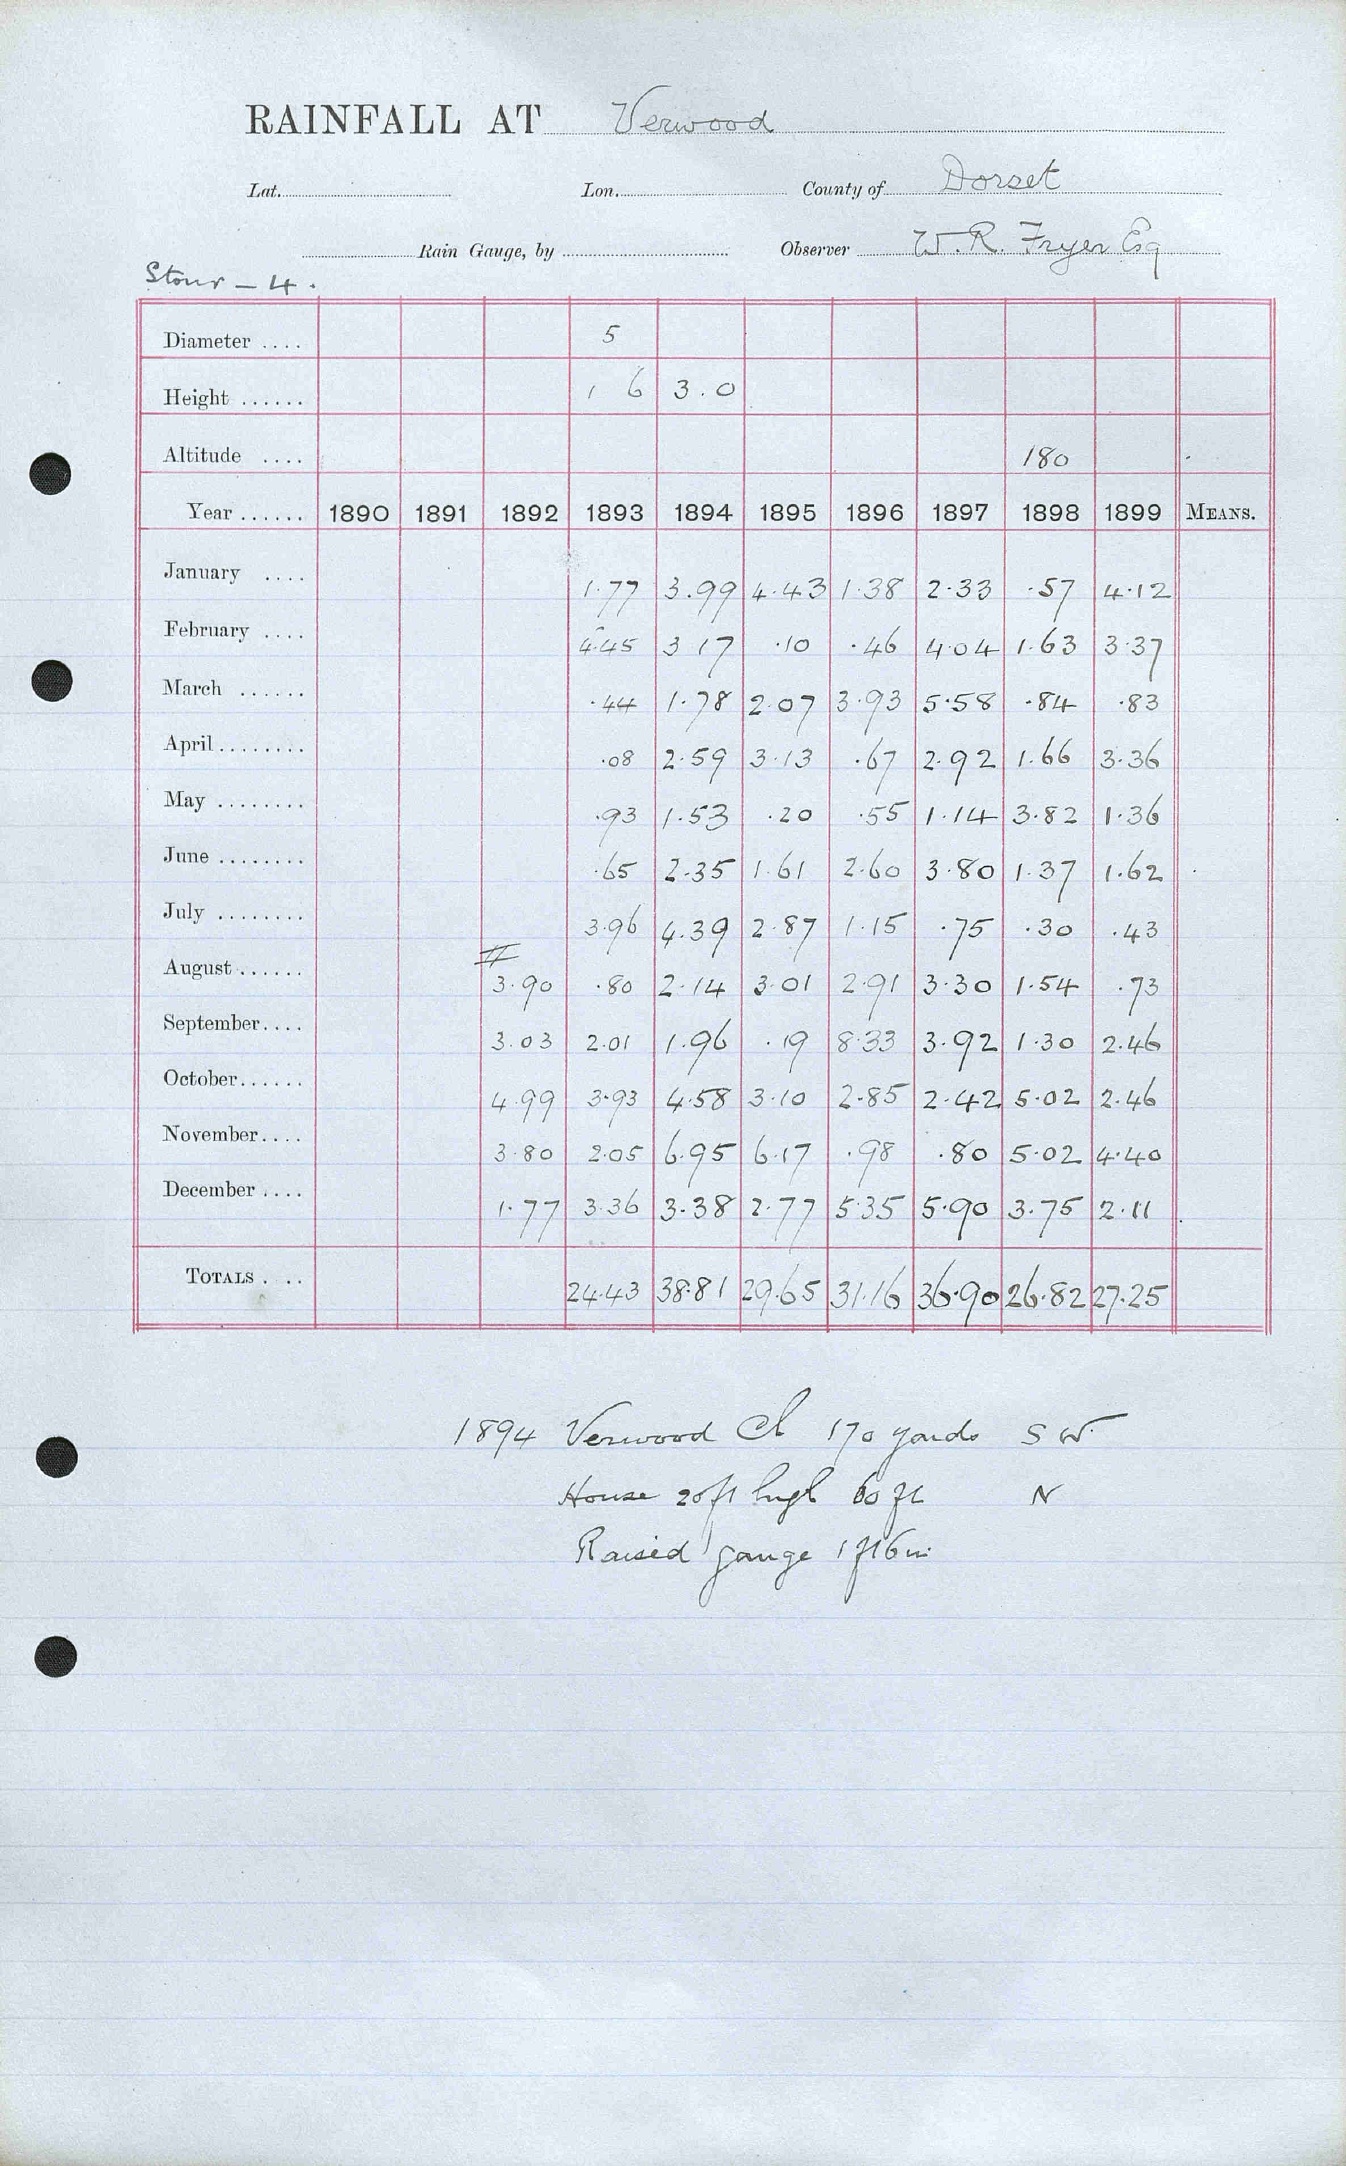 RAINFALL AT Verwood
Lat. Lon. County of Dorset
Rain Gauge, by Observer W. R. Fryer Esq
Stour - 4.
Diameter .... 5
Height ...... 1 6 3.0
Altitude .... 180
Year ...... 1890 1891 1892 1893 1894 1895 1896 1897 1898 1899 MEANS.
January .... 1.77 3.99 4.43 1.38 2.33 .57 4.12
February .... 4.45 3.17 .10 .46 4.04 1.63 3.37
March ...... .44 1.78 2.07 3.93 5.58 .84 .83
April ........ .08 2.59 3.13 .67 2.92 1.66 3.36
May ........ .93 1.53 .20 .55 1.14 3.82 1.36
June ........ .65 2.35 1.61 2.60 3.80 1.37 1.62
July ........ 3.96 4.39 2.87 1.15 .75 .30 .43
August ...... 3.90 .80 2.14 3.01 2.91 3.30 1.54 .73
September.... 3.03 2.01 1.96 .19 8.33 3.92 1.30 2.46
October...... 4.99 3.93 4.58 3.10 2.85 2.42 5.02 2.46
November.... 3.80 2.05 6.95 6.17 .98 .80 5.02 4.40
December .... 1.77 3.36 3.38 2.77 5.35 5.90 3.75 2.11
TOTALS .... 24.43 38.81 29.65 31.16 36.90 26.82 27.25
1894 Verwood Ch 170 yards S W
House 20ft high 60 ft N
Raised gauge 1 ft 6 in